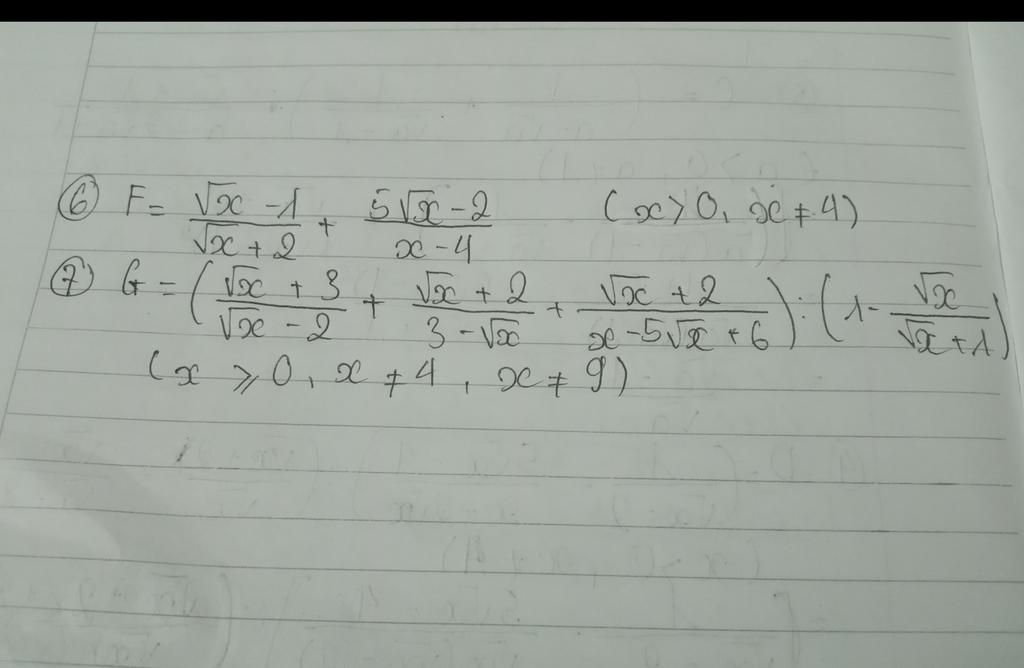 ⑥ F = (√x - 1)/(√x + 2) + (5√x - 2)/(x - 4) (x > 0, x ≠ 4)
⑦ G = ((√x + 3)/(√x - 2) + (√x + 2)/(3 - √x) + (√x + 2)/(x - 5√x + 6)) : (1 - √x/(√x + 1))
(x ⩾ 0, x ≠ 4, x ≠ 9)